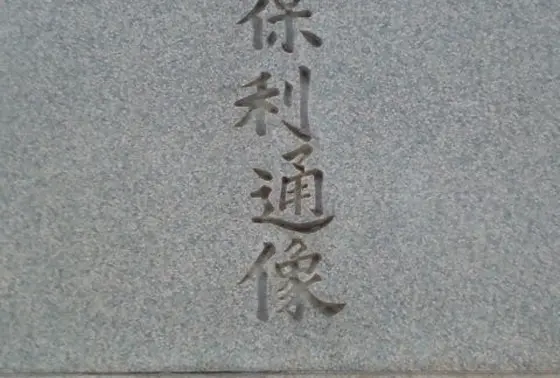 保利通像